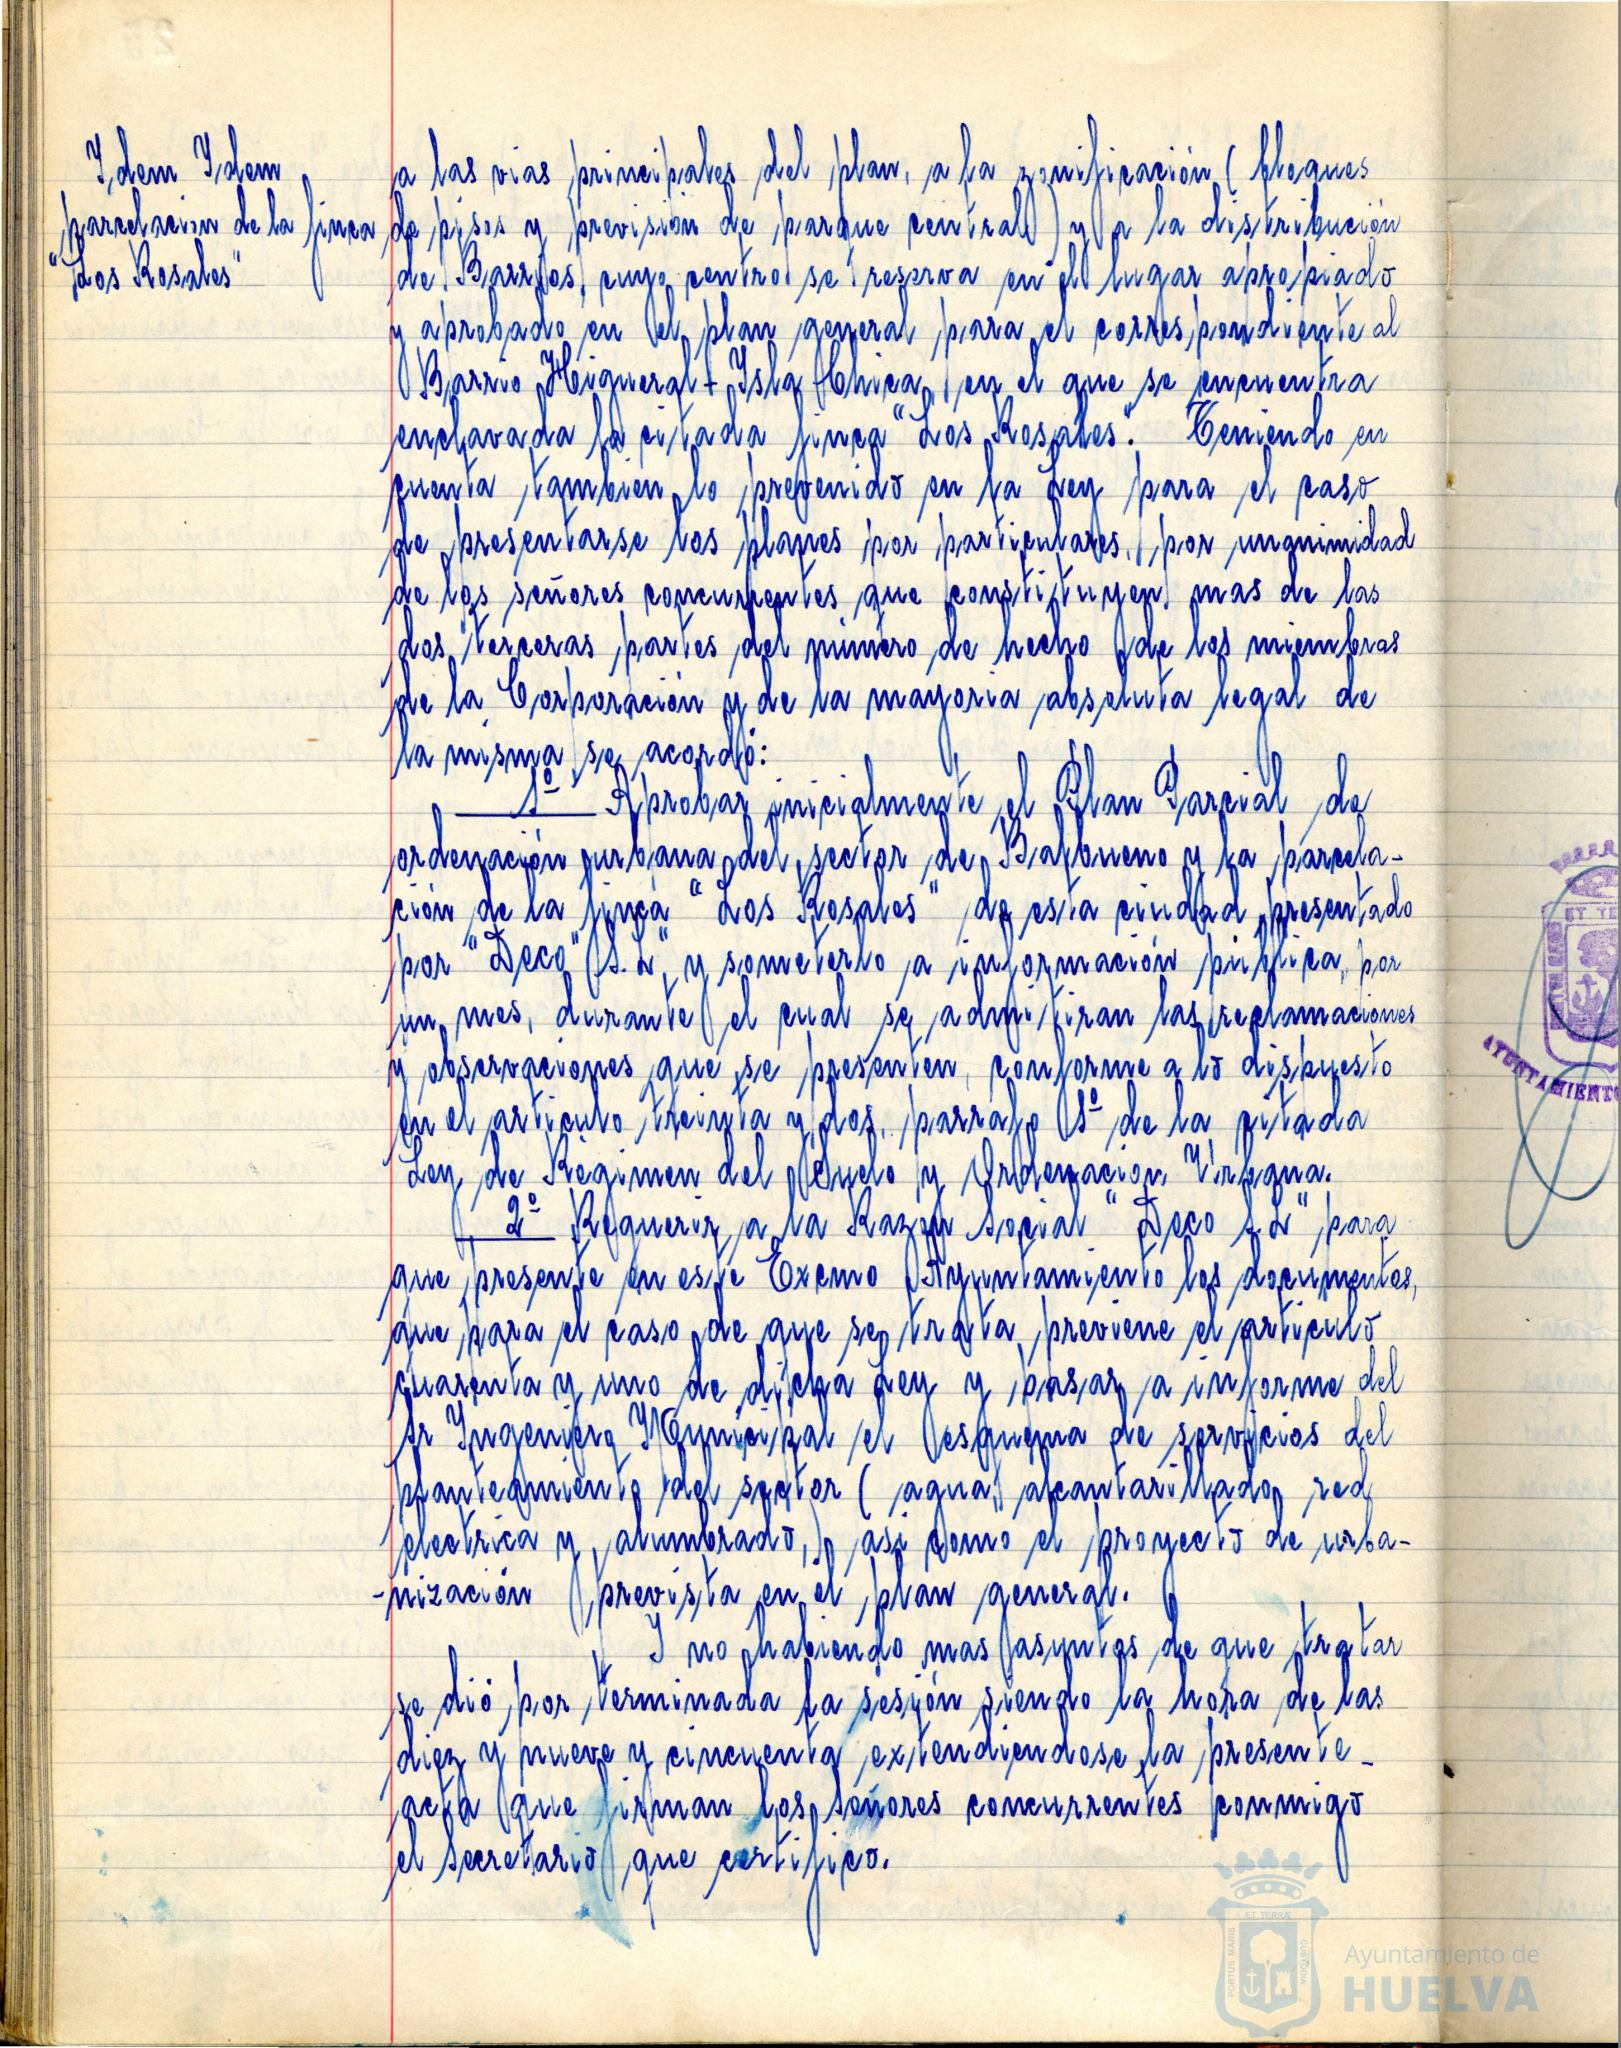 Idem Idem
parcelacion de la finca
"Los Rosales"
a las vias principales del plan, a la zonificación (bloques
de pisos y previsión de parque central) y a la distribución
de Barrios, cuyo centro se reserva en el lugar apropiado
y aprobado en el plan general para el correspondiente al
Barrio Higueral - Isla Chica, en el que se encuentra
enclavada la citada finca "Los Rosales". Teniendo en
cuenta tambien lo prevenido en la Ley para el caso
de presentarse los planes por particulares, por unanimidad
de los señores concurrentes que constituyen mas de las
dos terceras partes del número de hecho de los miembros
de la Corporación y de la mayoria absoluta legal de
la misma se acordó:
1º Aprobar inicialmente el Plan Parcial de
ordenación urbana del sector de Balbueno y la parcela-
ción de la finca "Los Rosales" de esta ciudad presentado
por "Deco S.L", y someterlo a información pública, por
un mes, durante el cual se admitiran las reclamaciones
y observaciones que se presenten, conforme a lo dispuesto
en el articulo treinta y dos, parrafo 1º de la citada
Ley de Régimen del Suelo y Ordenacion Urbana.
2º Requerir a la Razón Social "Deco S.L" para
que presente en este Excmo Ayuntamiento los documentos,
que para el caso de que se trata previene el articulo
cuarenta y uno de dicha Ley y pasar a informe del
Sr Ingeniero Municipal el esquema de servicios del
planteamiento del sector (agua, alcantarillado, red
electrica y alumbrado,) asi como el proyecto de urba-
-nización prevista en el plan general.
Y no habiendo mas asuntos de que tratar
se dió por terminada la sesión siendo la hora de las
diez y nueve y cincuenta extendiendose la presente-
acta que firman los señores concurrentes conmigo
el Secretario que certifico.
ET TERRÆ
AYUNTAMIENTO
ET TERRÆ
PORTUS MARIS
CUSTODIA
Ayuntamiento de
HUELVA